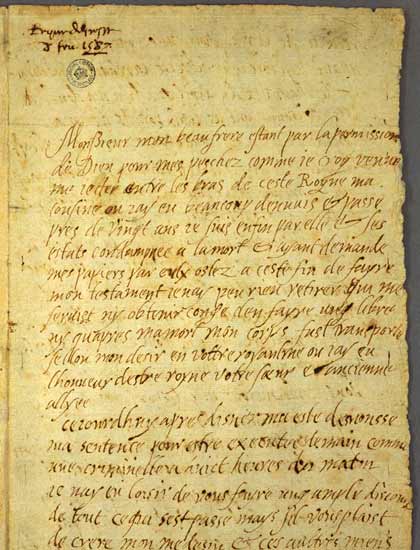 Monsieur mon beau frere estant par la permission
de Dieu pour mes pechez comme ie croy venue
me iecter entre les bras de ceste Royne ma
cousine ou iay eu beaucoup dennuis & passe
pres de vingt ans ie suis enfin par elle & ses
estats condampnee a la mort & ayant demande
mes papiers par eulx ostez a ceste fin de fayre
mon testament ie nay peu rien retirer qui me
servist ny obtenir conge den fayre ung libre
ny quapres ma mort mon corps fust transporte
sellon mon desir en votre royaulme ou iay eu
lhonneur destre royne votre sœur & ancienne
allyee
Ceiourdhuy apres disner ma este desnonsse
ma sentence pour estre executee demain comme
une criminelle a huict heures du matin
ie nay eu loisir de vous fayre ung ample discours
de tout ce qui sest passe mays sil vous plaist
de crere mon medesin & ces aultres miens